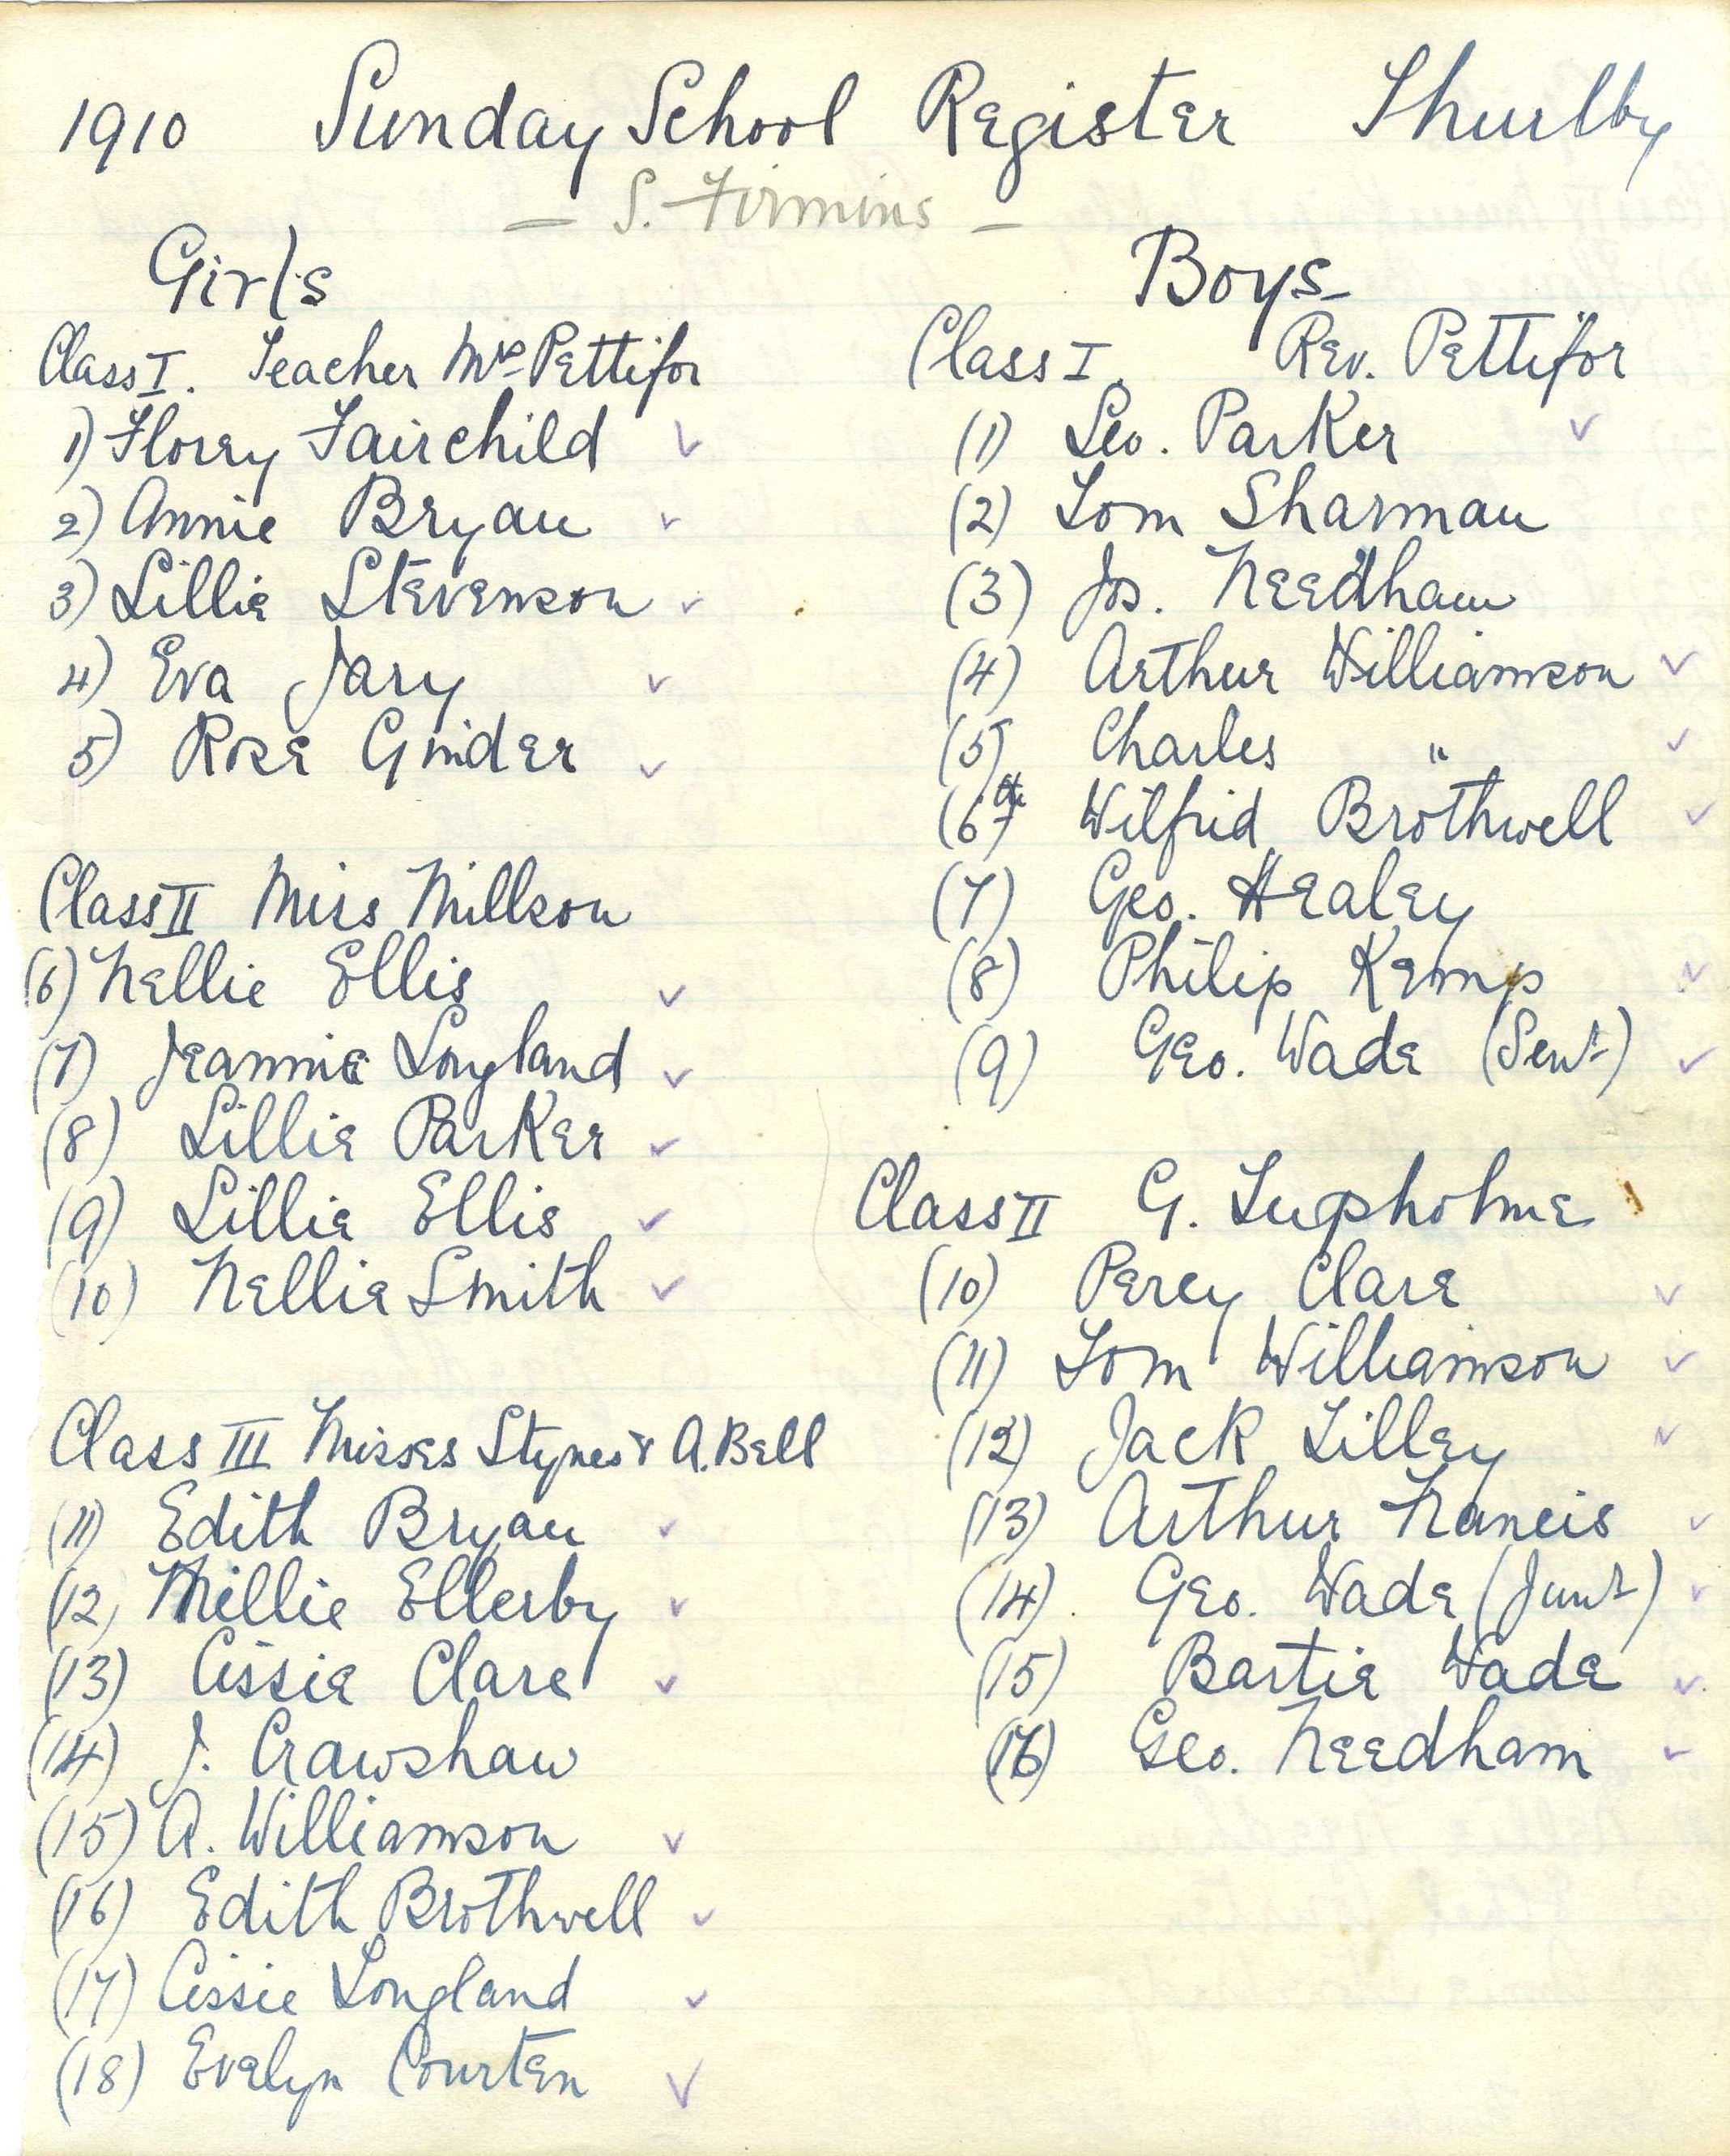 1910 Sunday School Register Thurlby
— S. Firmins —
Girls
Class I. Teacher Mrs Pettifor
1) Florry Fairchild ✓
2) Annie Bryan ✓
3) Lillie Stevenson ✓
4) Eva Jary ✓
5) Rose Ginder ✓
Class II Miss Millson
(6) Nellie Ellis ✓
(7) Jeannie Longland ✓
(8) Lillie Parker ✓
(9) Lillie Ellis ✓
(10) Nellie Smith ✓
Class III Misses Stynes & A. Bell
(11) Edith Bryan ✓
(12) Millie Ellerby ✓
(13) Cissie Clare ✓
(14) J. Crawshaw
(15) A. Williamson ✓
(16) Edith Brothwell ✓
(17) Cissie Longland ✓
(18) Evelyn Courten ✓
Boys
Class I. Rev. Pettifor
(1) Leo. Parker ✓
(2) Tom Sharman
(3) Jos. Needham
(4) Arthur Williamson ✓
(5) Charles " ✓
(6) Wilfrid Brothwell ✓
(7) Geo. Healey
(8) Philip Kemp ✓
(9) Geo. Wade (Senr) ✓
Class II G. Lupholme
(10) Percy Clare ✓
(11) Tom Williamson ✓
(12) Jack Lilley ✓
(13) Arthur Francis ✓
(14). Geo. Wade (Junr) ✓
(15) Bartie Wade ✓
(16) Geo. Needham ✓